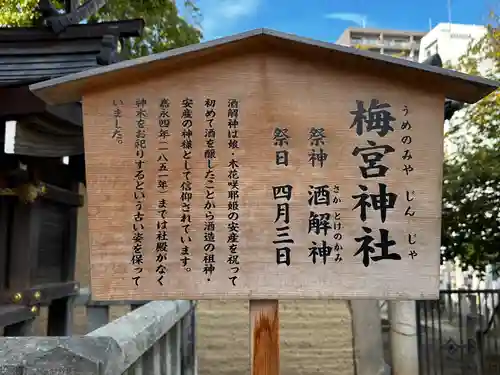 梅宮神社
うめのみやじんじゃ
祭神 酒解神
さかとけのかみ
祭日 四月三日
酒解神は娘・木花咲耶姫の安産を祝って
初めて酒を醸したことから酒造の祖神・
安産の神様として信仰されています。
嘉永四年(一八五一年)までは社殿がなく
神木をお祀りするという古い姿を保って
いました。